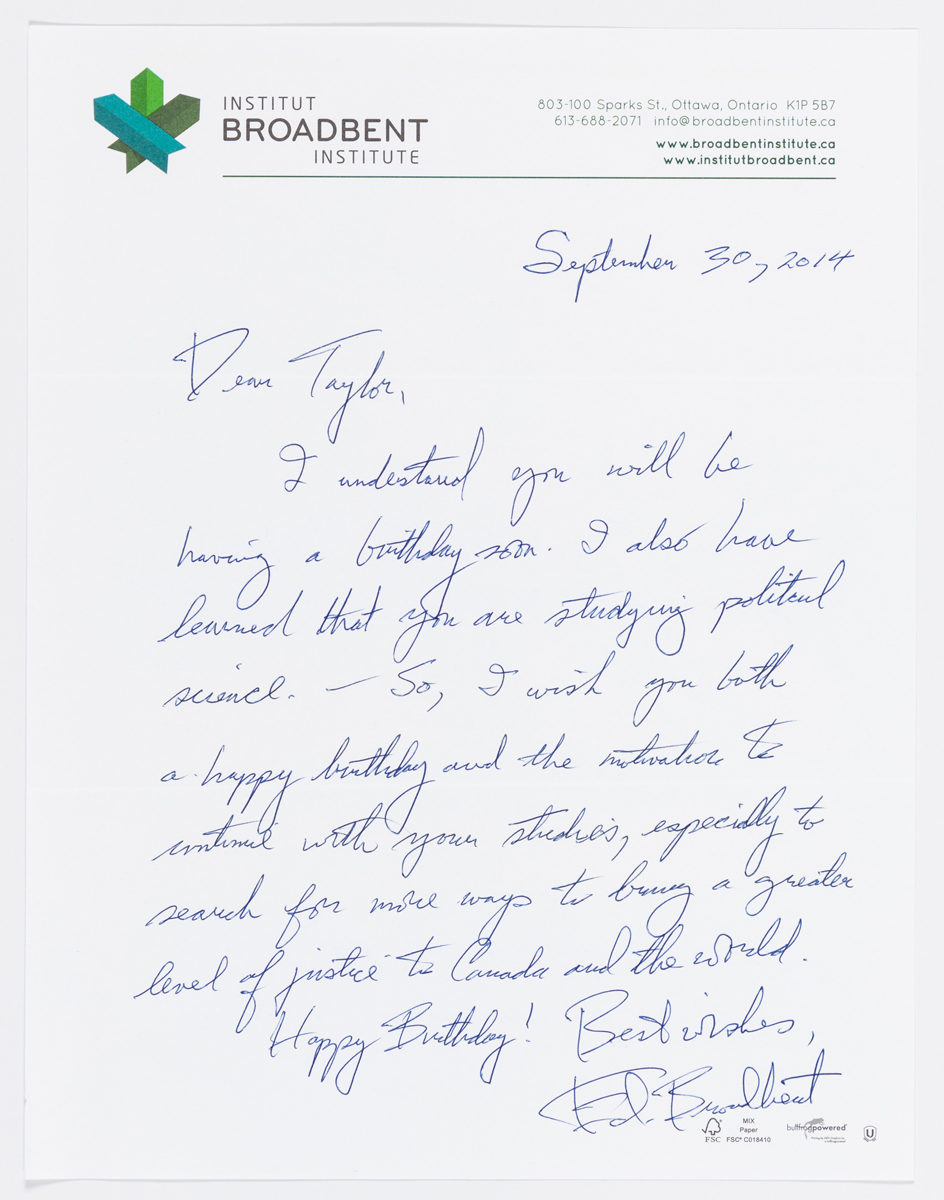 INSTITUT
BROADBENT
INSTITUTE
803-100 Sparks St., Ottawa, Ontario K1P 5B7
613-688-2071 info@broadbentinstitute.ca
www.broadbentinstitute.ca
www.institutbroadbent.ca
September 30, 2014
Dear Taylor,
I understand you will be
having a birthday soon. I also have
learned that you are studying political
science. — So, I wish you both
a happy birthday and the motivation to
continue with your studies, especially to
search for more ways to bring a greater
level of justice to Canada and the world.
Happy Birthday! Best wishes,
Ed. Broadbent
FSC
MIX
Paper
FSC® C018410
bullfrogpowered